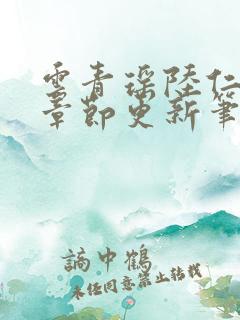 雲青瑤陸仁
章節更新筆
謫中鶴
未經同意禁止轉載